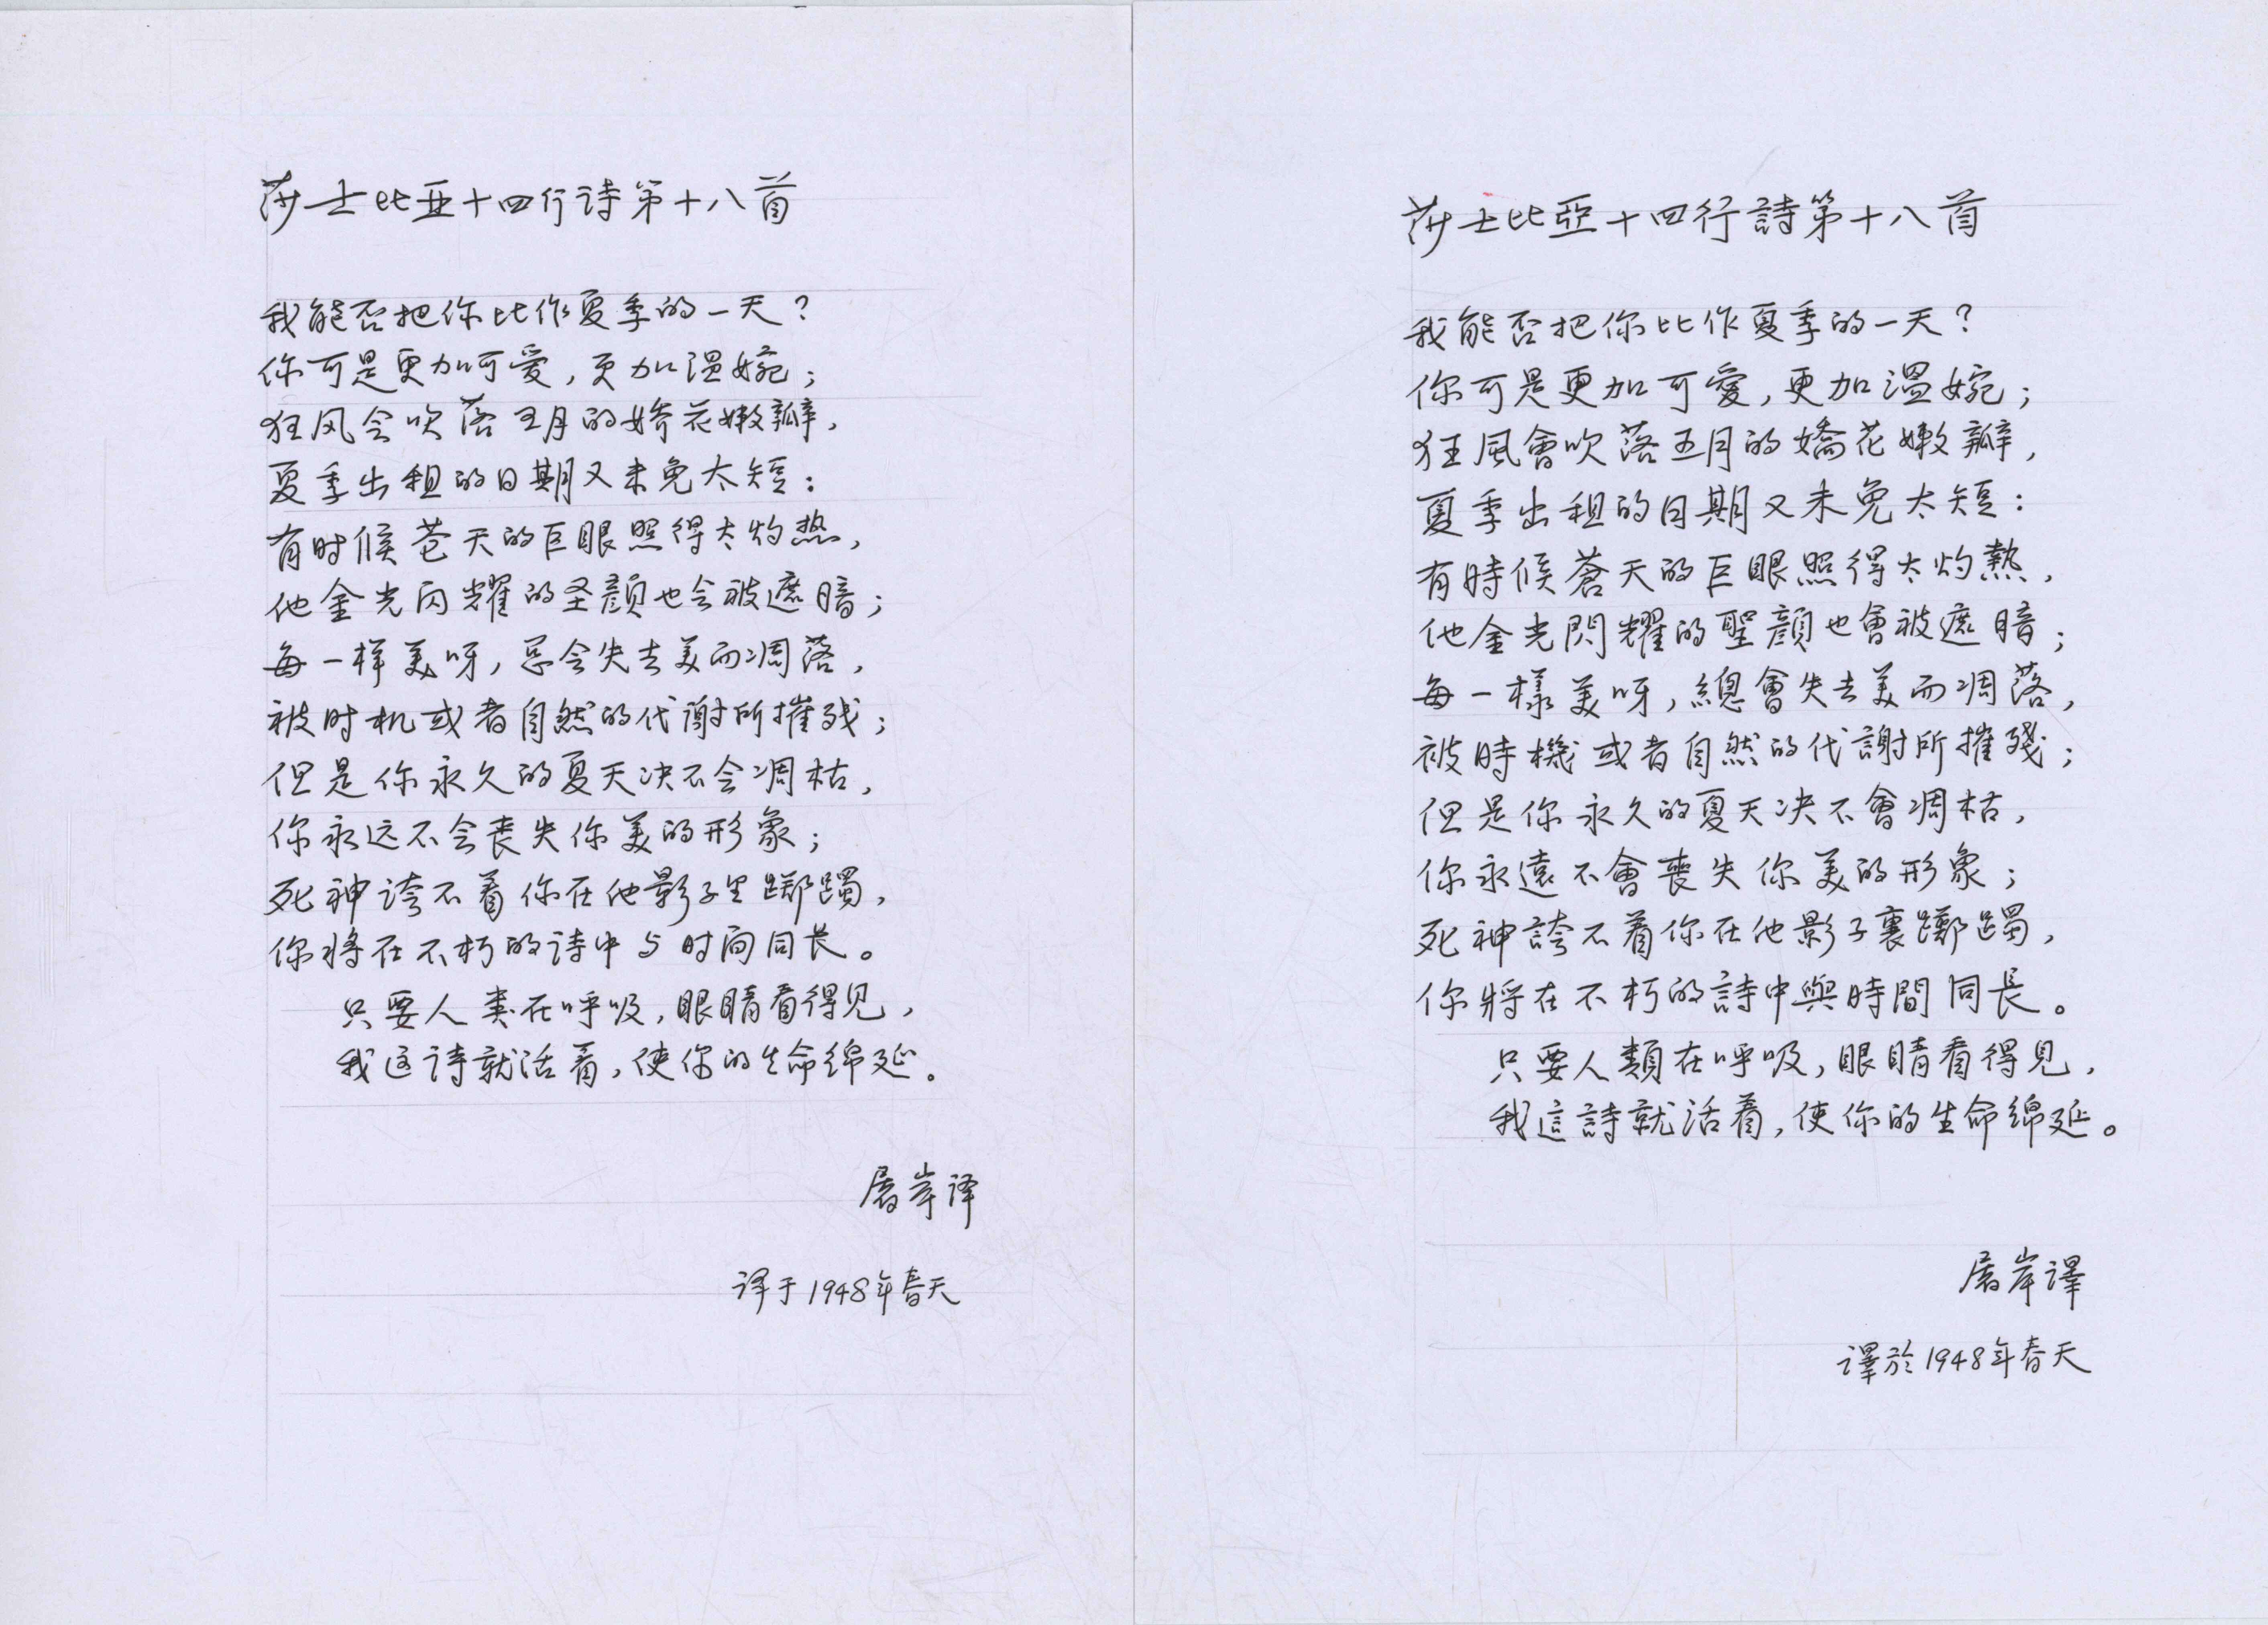 莎士比亚十四行诗第十八首
我能否把你比作夏季的一天？
你可是更加可爱，更加温婉；
狂风会吹落五月的娇花嫩瓣，
夏季出租的日期又未免太短：
有时候苍天的巨眼照得太灼热，
他金光闪耀的圣颜也会被遮暗；
每一样美呀，总会失去美而凋落，
被时机或者自然的代谢所摧残；
但是你永久的夏天决不会凋枯，
你永远不会丧失你美的形象；
死神夸不着你在他影子里踯躅，
你将在不朽的诗中与时间同长。
只要人类在呼吸，眼睛看得见，
我这诗就活着，使你的生命绵延。
屠岸译
译于1948年春天
莎士比亞十四行詩第十八首
我能否把你比作夏季的一天？
你可是更加可愛，更加溫婉；
狂風會吹落五月的嬌花嫩瓣，
夏季出租的日期又未免太短：
有時候蒼天的巨眼照得太灼熱，
他金光閃耀的聖顏也會被遮暗；
每一樣美呀，總會失去美而凋落，
被時機或者自然的代謝所摧殘；
但是你永久的夏天決不會凋枯，
你永遠不會喪失你美的形象；
死神誇不着你在他影子裏躑躅，
你將在不朽的詩中與時間同長。
只要人類在呼吸，眼睛看得見，
我這詩就活着，使你的生命綿延。
屠岸譯
譯於1948年春天